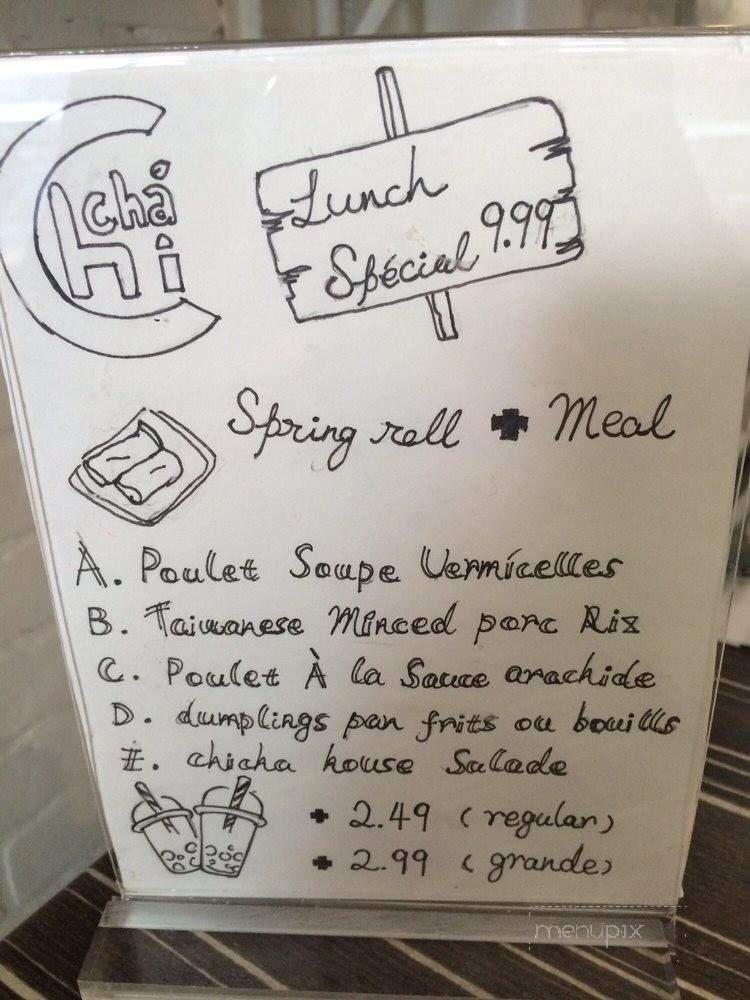 Chi chá
Lunch
Spécial 9.99
Spring roll + Meal
A. Poulet Soupe Vermicelles
B. Taiwanese Minced porc Riz
C. Poulet À la Sauce arachide
D. dumplings pan frits ou bouills
E. chicha house Salade
+ 2.49 (regular)
+ 2.99 (grande)
menupix